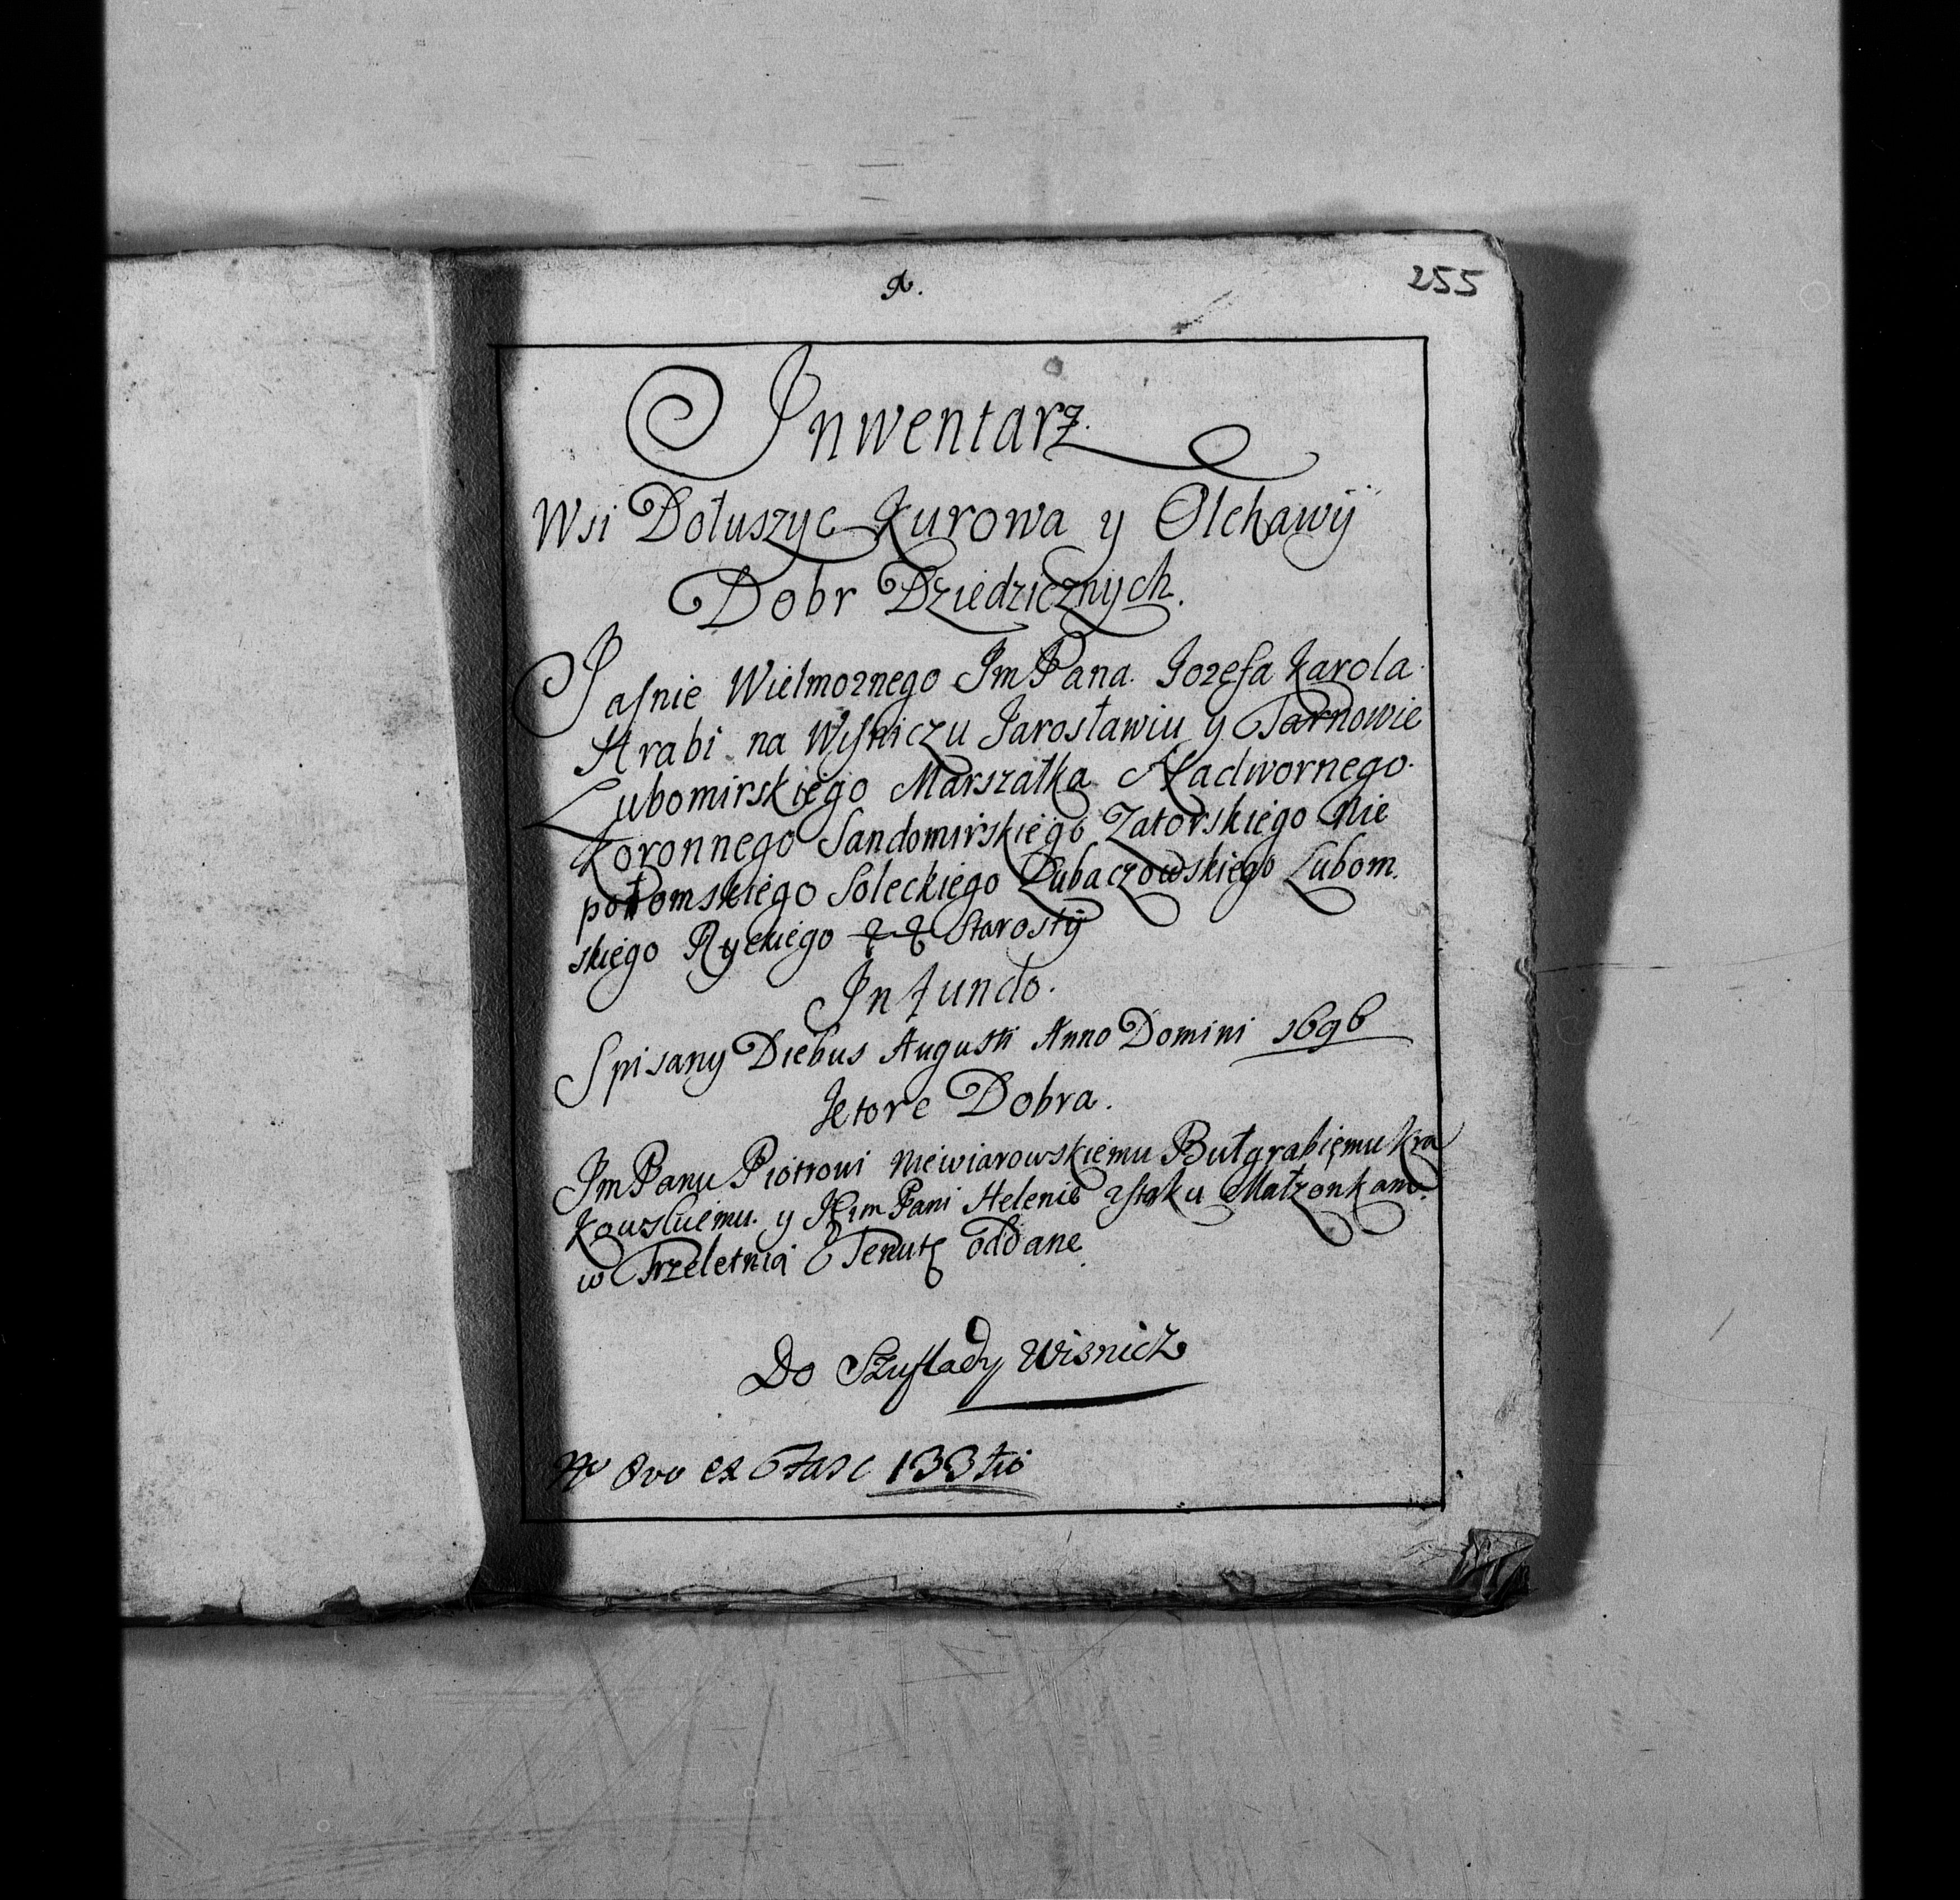 A.
255
Inwentarz.
Wsi Dołuszyc Kurowa y Olchawÿ
Dobr Dziedzicznÿch.
Jaſnie Wielmoznego Jm Pana Jozefa Karola
Hrabi na Wiſniczu Jarosławiu y Tarnowie
Lubomirskiego Marszałka Nadwornego
Koronnego Sandomirskiego Zatorskiego Nie
połomskiego Soleckiego Lubaczowskiego Lubom.
skiego Ryckiego Starostÿ
In fundo.
Spisany Diebus Augusti Anno Domini 1696
Ktore Dobra.
Jm Panu Piotrowi Niewiarowskiemu Butgrabięmu Kra
kowskiemu. y Jeim Pani Helenie Małzonkom.
w Trzeletnią Tenutę oddane.
Do Szuflady Wisnicz
No 8vo ex Fasc 133tio